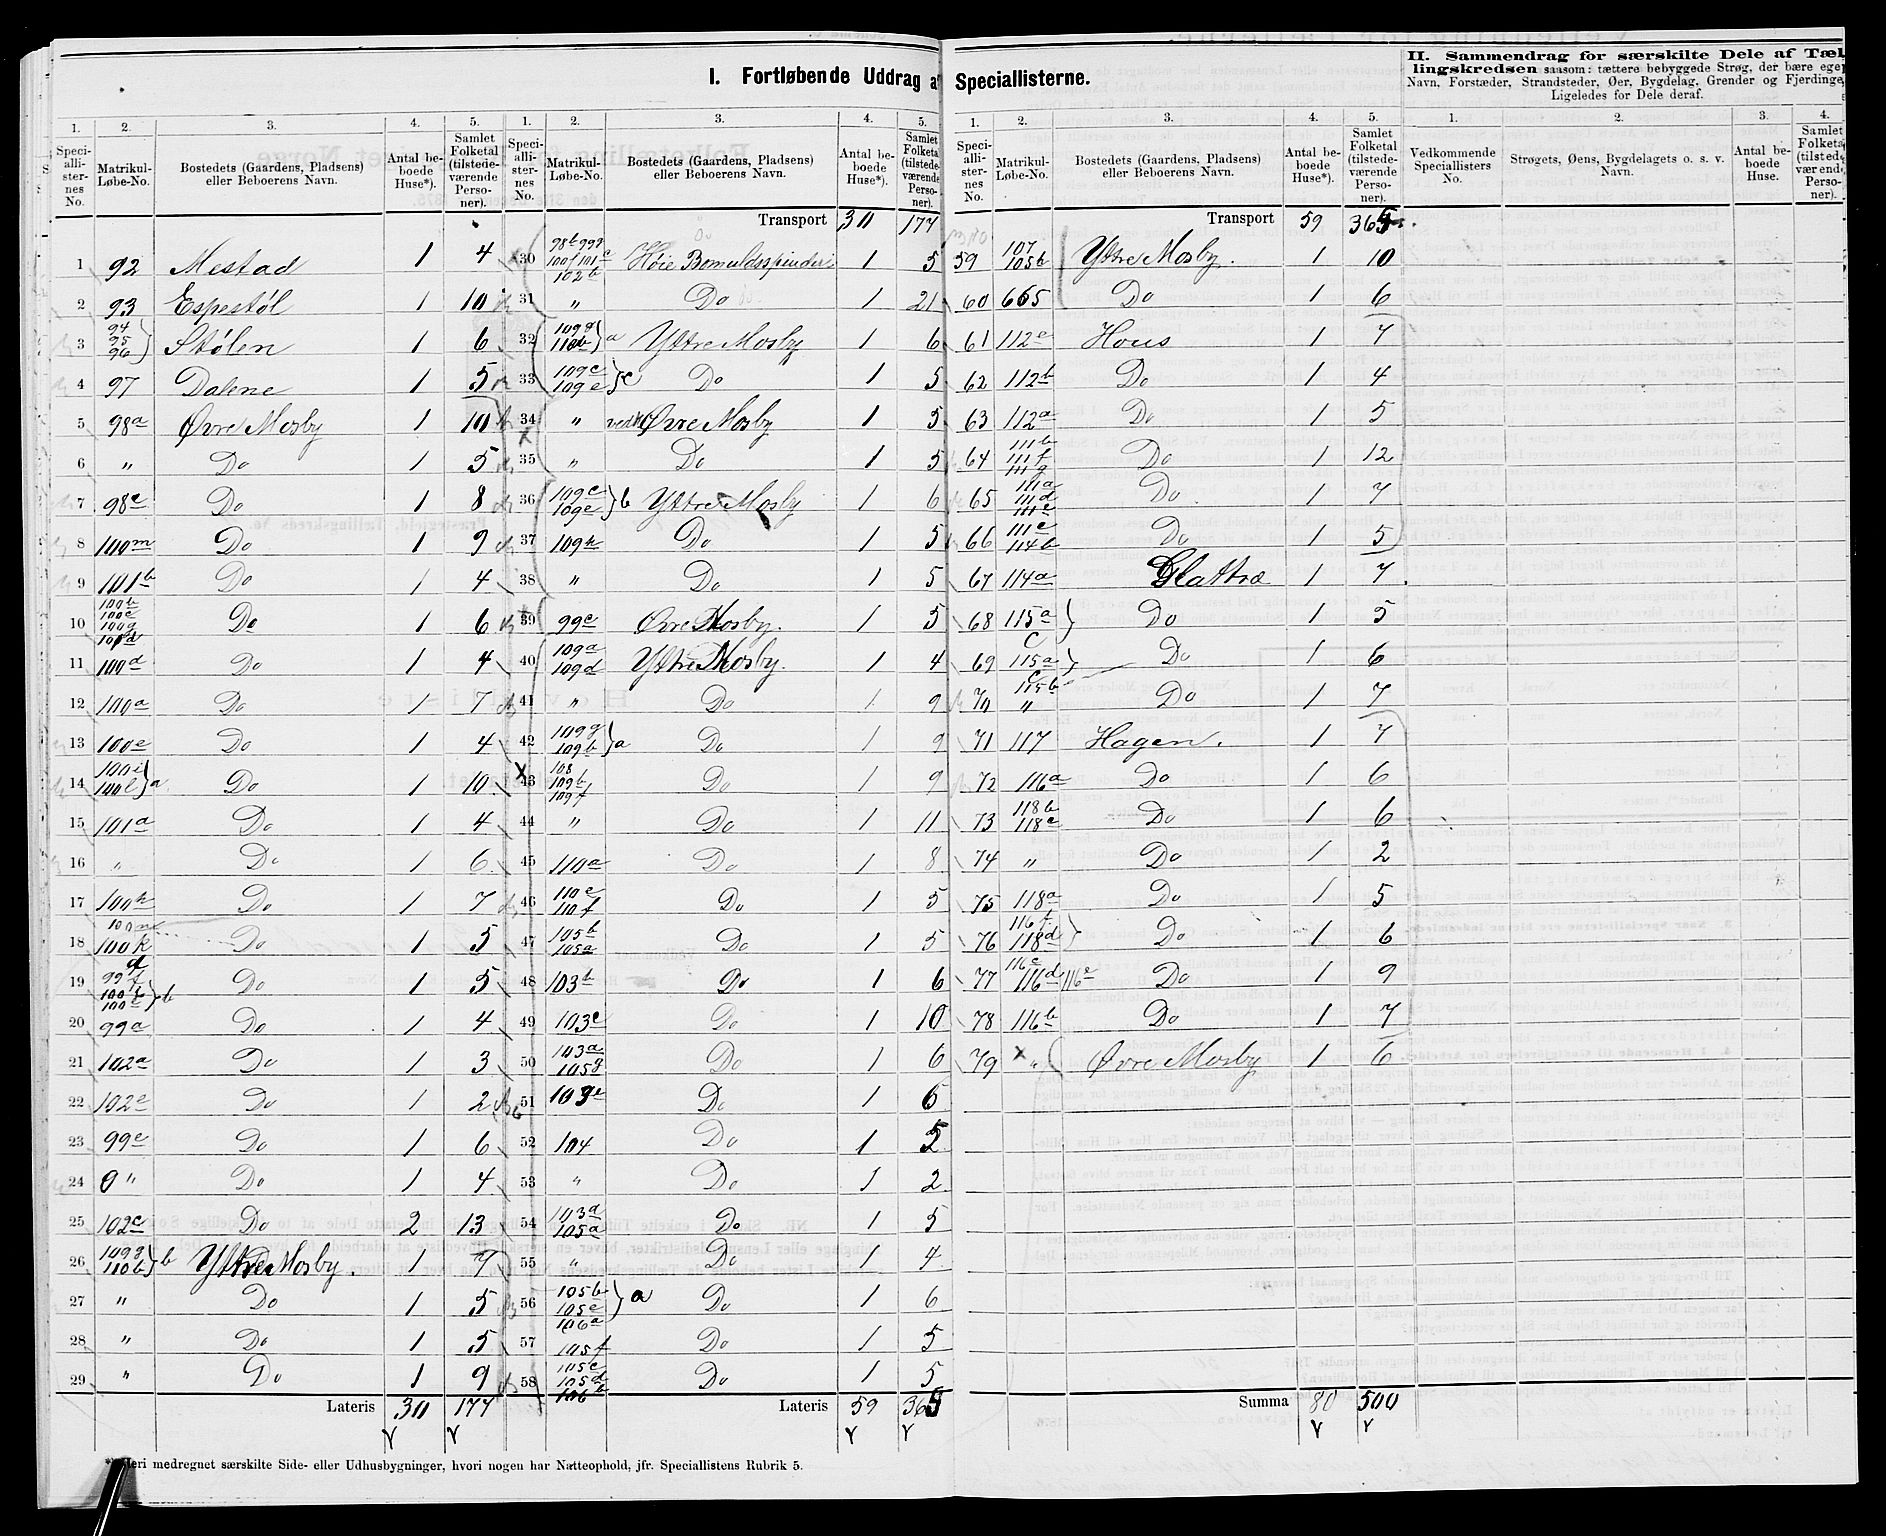 I. Fortløbende Uddrag af Speciallisterne.
II. Sammendrag for særskilte Dele af Tællingskredsen saasom: tættere bebyggede Strøg, der bære eget
Navn, Forstæder, Strandsteder, Øer, Bygdelag, Grender og Fjerdinge
Ligeledes for Dele deraf.
1. 2. 3. 4. 5. 1. 2. 3. 4. 5. 1. 2. 3. 4. 5. 1. 2. 3. 4.
Speciallisternes No. Matrikul-Løbe-No. Bostedets (Gaardens, Pladsens) eller Beboerens Navn. Antal beboede Huse*). Samlet Folketal (tilstedeværende Personer).
Speciallisternes No. Matrikul-Løbe-No. Bostedets (Gaardens, Pladsens) eller Beboerens Navn. Antal beboede Huse*). Samlet Folketal (tilstedeværende Personer).
Speciallisternes No. Matrikul-Løbe-No. Bostedets (Gaardens, Pladsens) eller Beboerens Navn. Antal beboede Huse*). Samlet Folketal (tilstedeværende Personer).
Vedkommende Speciallisters No. Strøgets, Øens, Bygdelagets o. s. v. Navn. Antal beboede Huse. Samlet Folketal (tilstedeværende Personer).
1 92 Mestad 1 4
2 93 Espestøl 1 10
3 94 95 96 } Stølen 1 6
4 97 Dalene 1 5
5 98a Øvre Mosby 1 10
6 " Do 1 5
7 98c Do 1 8
8 100m Do 1 9
9 101b Do 1 4
10 100b 100c 100g 101d Do 1 6
11 100d Do 1 4
12 100a Do 1 7
13 100e Do 1 4
14 100i 100l } a Do 1 10
15 101a Do 1 4
16 " Do 1 6
17 100h Do 1 7
18 100n 100k Do 1 5
19 99f 100b 100c } b Do 1 5
20 99a Do 1 4
21 102a Do 1 3
22 102e Do 1 2
23 99e Do 1 6
24 " Do 1 4
25 102c Do 2 13
26 109g 110b } b Yttre Mosby. 1 7
27 " Do 1 5
28 " Do 1 5
29 " Do 1 9
Lateris 30 177
Transport 30 177
30 98b 99g 100f 101c 102b Høie Bomuldsspinderi 1 5
31 " Do 1 21
32 109g 110b } a Yttre Mosby 1 6
33 109c 109e } c Do 1 5
34 " Øvre Mosby 1 5
35 " Do 1 5
36 109c 109e } b Yttre Mosby 1 6
37 109h Do 1 5
38 " Do 1 5
39 99c Øvre Mosby. 1 5
40 109a 109d Yttre Mosby. 1 4
41 " Do 1 9
42 109g 109b } a Do 1 9
43 108 109b 109f Do 1 9
44 " Do 1 11
45 110a Do 1 8
46 110e 110f Do 1 5
47 105b 105a Do 1 5
48 103b Do 1 6
49 103c Do 1 10
50 103a 105g Do 1 6
51 103e Do 1 6
52 104 Do 1 5
53 " Do 1 2
54 103d 105a Do 1 5
55 " Do 1 4
56 105b 105e } a Do 1 6
57 106a 105f Do 1 5
58 105c 105d 106b Do 1 5
Lateris 59 365
Transport 59 365
59 107 105b Yttre Mosby. 1 10
60 665 Do 1 6
61 112c Hous 1 7
62 112b Do 1 4
63 112a Do 1 5
64 111b 111f 111g Do 1 12
65 111a 111d 111c Do 1 7
66 111e 114b Do 1 5
67 114a Glattræ 1 7
68 115a c } Do 1 5
69 115a c } Do 1 6
70 115b " Do 1 7
71 117 Hagen. 1 7
72 116a Do 1 6
73 118b 118c Do 1 6
74 " Do 1 2
75 118a Do 1 5
76 116f 118d } Do 1 6
77 116c 116d 116e Do 1 9
78 116b Do 1 7
79 x " Øvre Mosby 1 6
Summa 80 500
*) Heri medregnet særskilte Side- eller Udhusbygninger, hvori nogen har Natteophold, jfr. Speciallistens Rubrik 5.